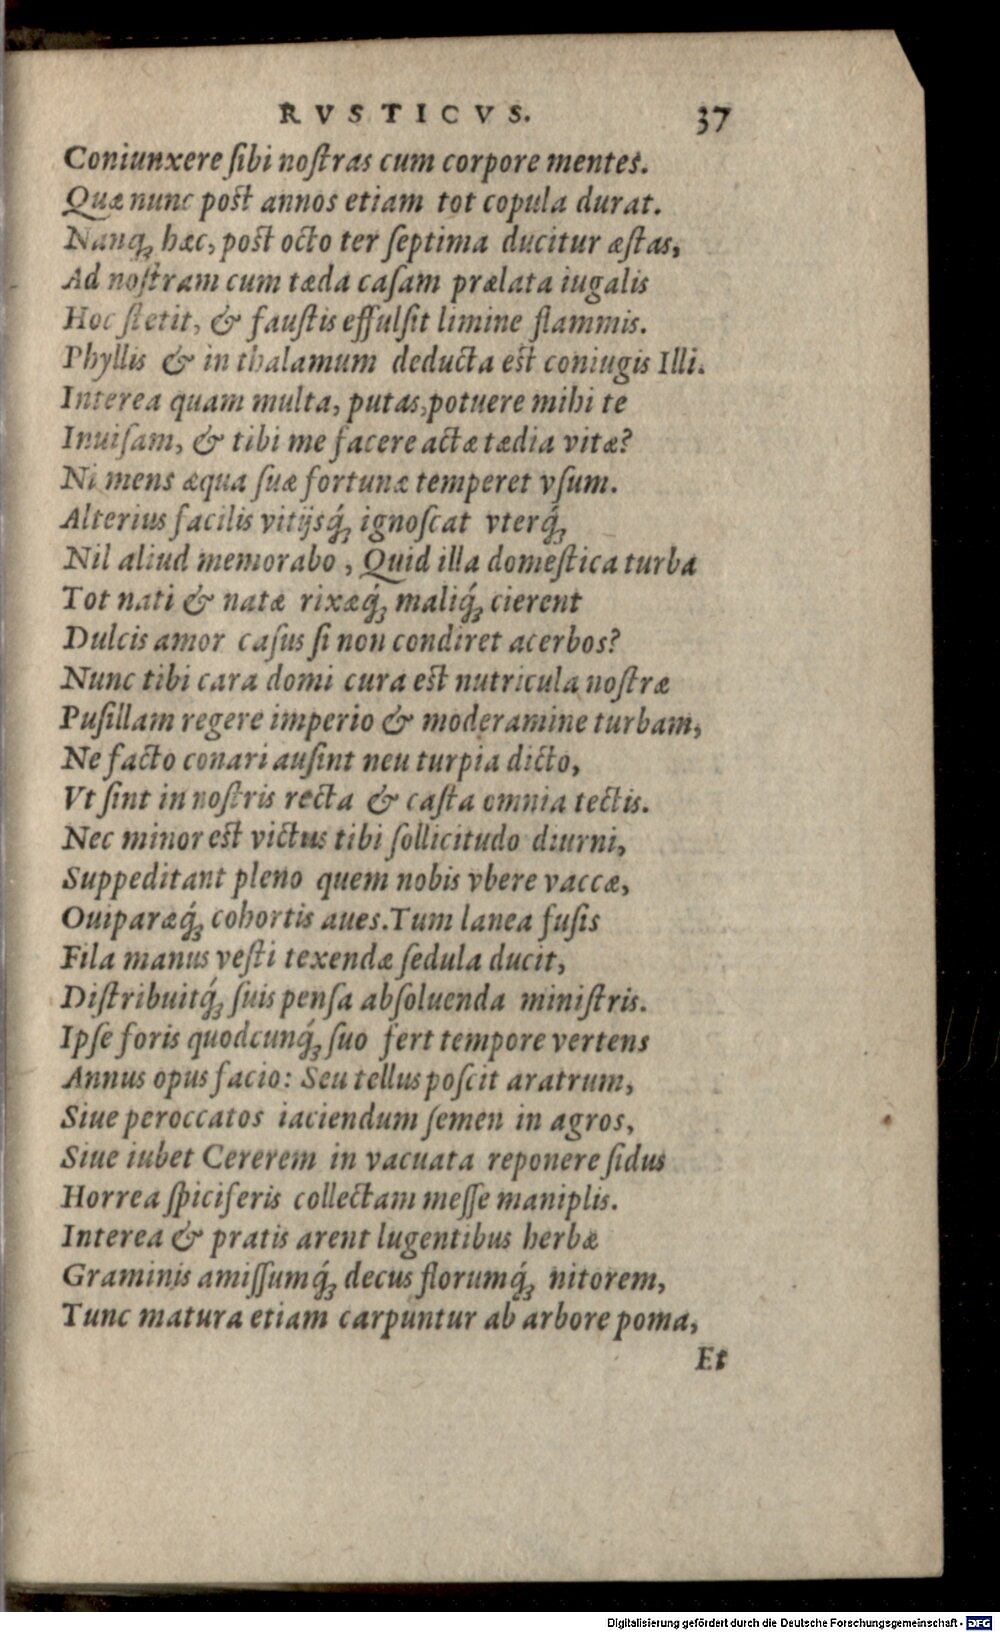 RVSTICVS. 37
Coniunxere ſibi noſtras cum corpore mentes.
Quæ nunc post annos etiam tot copula durat.
Nanq́; hæc, post octo ter ſeptima ducitur æſtas,
Ad noſtram cum tæda caſam prælata iugalis
Hoc ſtetit, & fauſtis effulſit limine flammis.
Phyllis & in thalamum deducta est coniugis Illi.
Interea quam multa, putas, potuere mihi te
Inuiſam, & tibi me facere actæ tædia vitæ?
Ni mens æqua ſuæ fortunæ temperet vſum.
Alterius facilis vitijsq́; ignoſcat vterq́;
Nil aliud memorabo, Quid illa domeſtica turba
Tot nati & natæ rixæq́; maliq́; cierent
Dulcis amor caſus ſi non condiret acerbos?
Nunc tibi cara domi cura est nutricula noſtræ
Puſillam regere imperio & moderamine turbam,
Ne facto conari auſint neu turpia dicto,
Vt ſint in noſtris recta & caſta omnia tectis.
Nec minor est victus tibi ſollicitudo diurni,
Suppeditant pleno quem nobis vbere vaccæ,
Ouiparæq́; cohortis aues. Tum lanea fuſis
Fila manus veſti texendæ ſedula ducit,
Diſtribuitq́; ſuis penſa abſoluenda miniſtris.
Ipſe foris quodcunq́; ſuo fert tempore vertens
Annus opus facio: Seu tellus poſcit aratrum,
Siue peroccatos iaciendum ſemen in agros,
Siue iubet Cererem in vacuata reponere ſidus
Horrea ſpiciferis collectam meſſe maniplis.
Interea & pratis arent lugentibus herbæ
Graminis amiſſumq́; decus florumq́; nitorem,
Tunc matura etiam carpuntur ab arbore poma,
Et
Digitalisierung gefördert durch die Deutsche Forschungsgemeinschaft - DFG